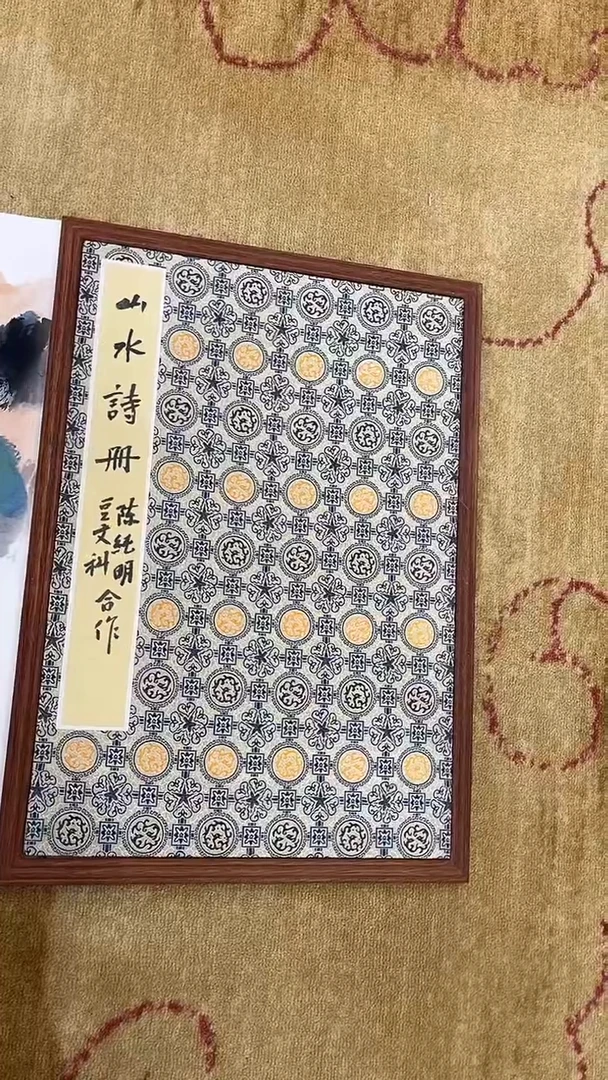 山水詩册
陈纯明
豆文科
合作